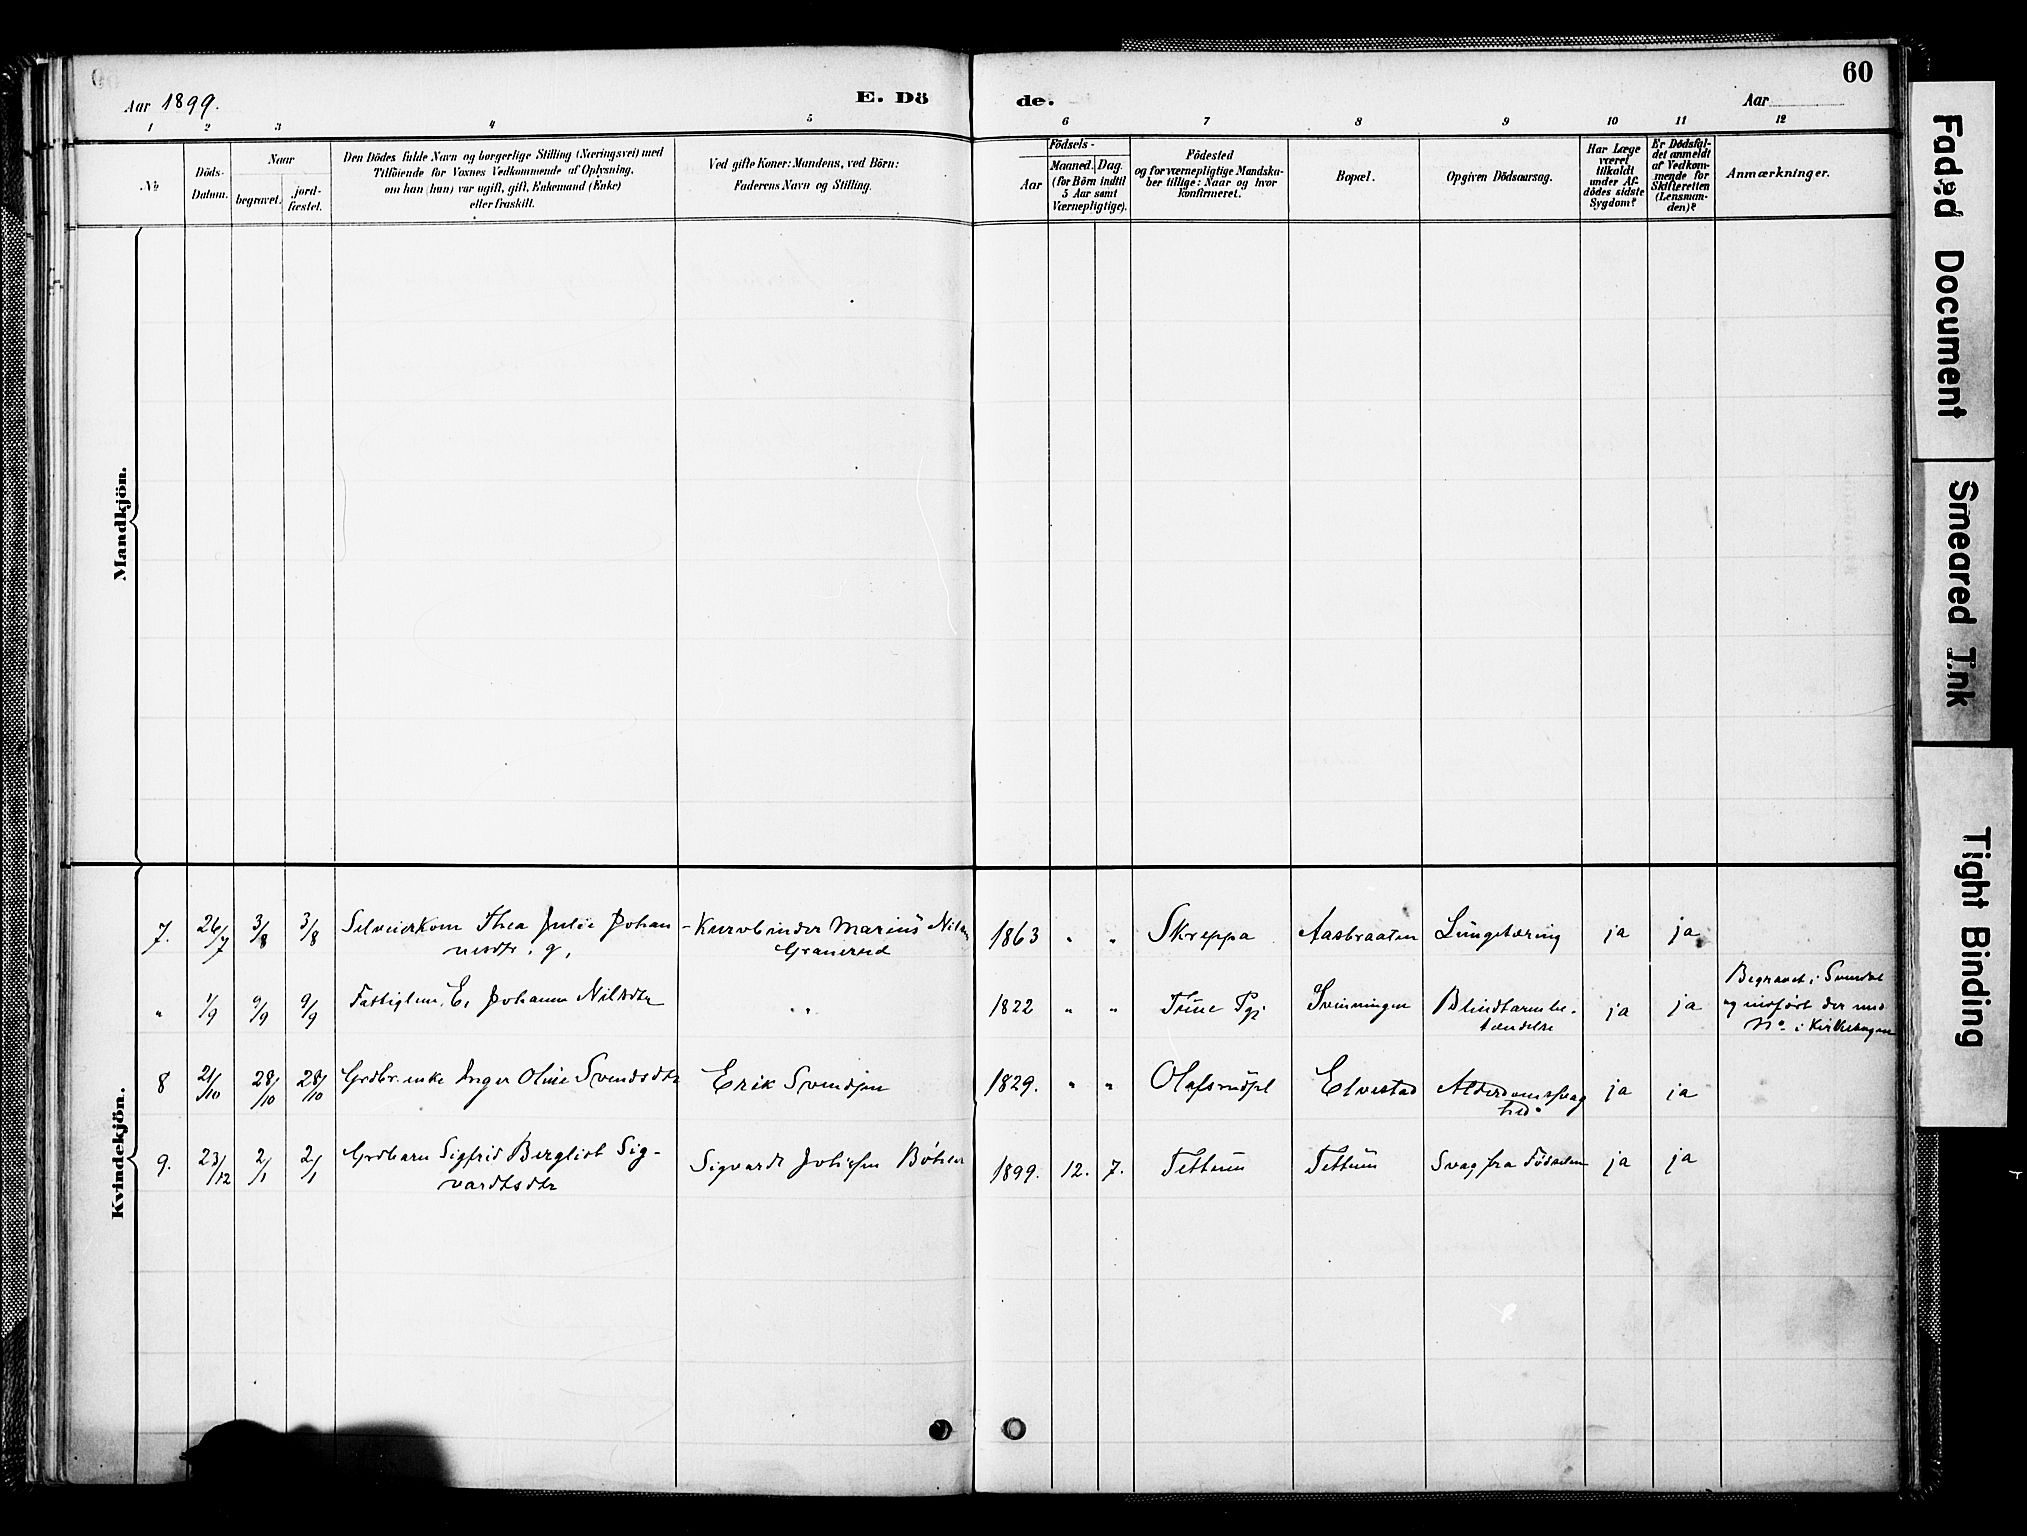 60
Aar 1899.
E. Dö
de.
Aar
1 2 3 4 5 6 7 8 9 10 11 12
No
Döds-
Datum.
Naar
begravet.
jord-
fæstet.
Den Dödes fulde Navn og borgerlige Stilling (Næringsvei) med
Tilföiende for Voxnes Vedkommende af Oplysning,
om han (hun) var ugift, gift, Enkemand (Enke)
eller fraskilt.
Ved gifte Koner: Mandens, ved Börn:
Faderens Navn og Stilling.
Aar
Födsels-
Maaned. Dag.
(for Börn indtil
5 Aar samt
Værnepligtige).
Födested
og for værnepligtige Mandska-
ber tillige: Naar og hvor
konfirmeret.
Bopæl.
Opgiven Dödsaarsag.
Har Læge
været
tilkaldt
under Af-
dödes sidste
Sygdom?
Er Dödsfal-
det anmeldt
af Vedkom-
mende for
Skifteretten
(Lensman-
den)?
Anmærkninger.
Mandkjön.
Kvindekjön.
7. 26/7 3/8 3/8 Selveierkone Thea Julie Johan-
nesdtr. g.
Kurvbinder Marius Nilsen
Granerud
1863 " " Skreppa Aasbraaten Lungetæring ja ja
" 1/9 9/9 9/9 Fattiglem, E. Johanne Nilsdtr " " 1822 " " Tune Pgj Svenningen Blindtarmbe-
tændelse
ja ja
Begravet i Svendal
og indfört der med
No i Kirkebogen
8 21/10 28/10 28/10 Grdbr.enke Inger Oline Svendsdtr Erik Svendsen 1829. " " Olafsrudpl Elvestad Alderdomssvag
hed
ja ja
9. 23/12 2/1 2/1 Grdbarn Sigfrid Bergliot Sig-
vardtsdtr
Sigvardt 1899. 12. 7. Tettum Tettum Svag fra Födselen ja ja
Faded Document
Smeared Ink
Tight Binding